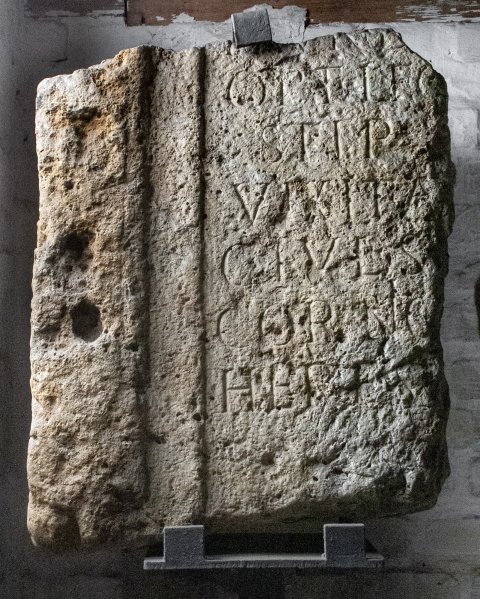 OPTIO
STIP
VIXIT A
CIVES
CORNO
HERE